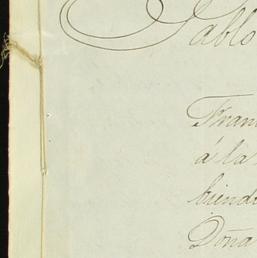 Pablo
Fran
á la
biendo
Doña